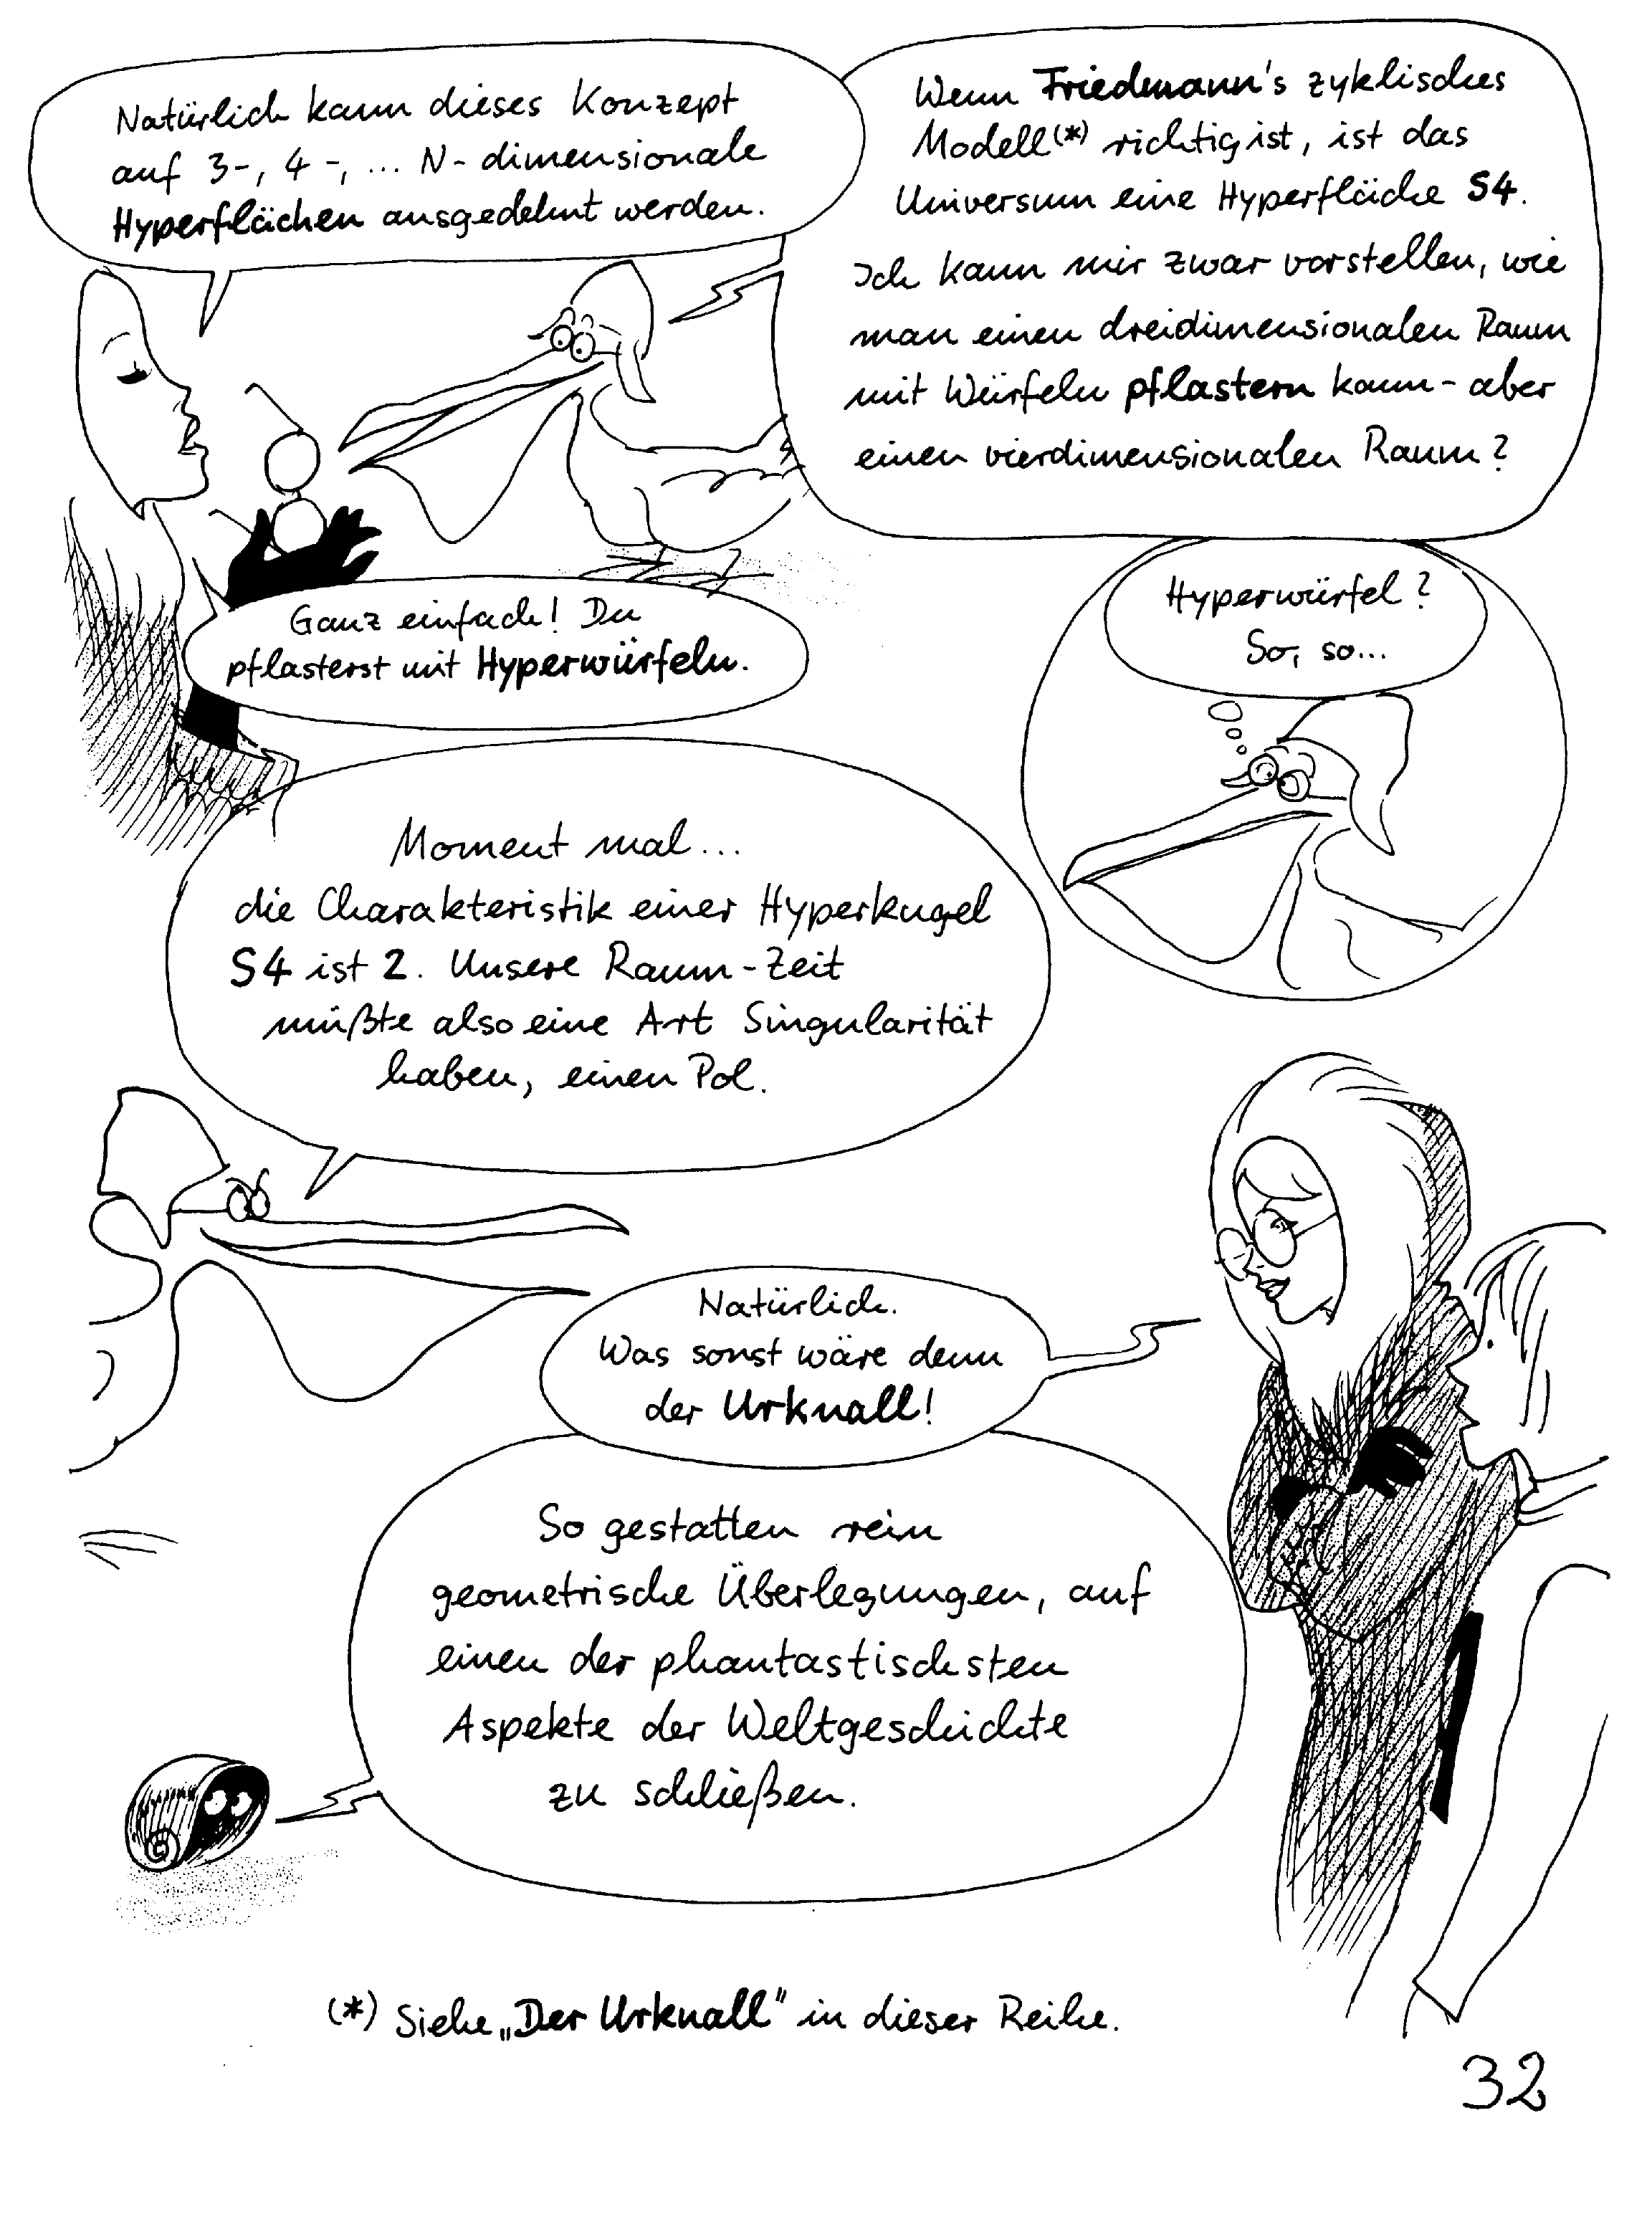 Natürlich kann dieses Konzept
auf 3-, 4-, ... N-dimensionale
Hyperflächen ausgedehnt werden.
Wenn Friedmann's zyklisches
Modell(*) richtig ist, ist das
Universum eine Hyperfläche S4.
Ich kann mir zwar vorstellen, wie
man einen dreidimensionalen Raum
mit Würfeln pflastern kann - aber
einen vierdimensionalen Raum?
Ganz einfach! Du
pflasterst mit Hyperwürfeln.
Hyperwürfel?
So, so...
Moment mal...
die Charakteristik einer Hyperkugel
S4 ist 2. Unsere Raum-Zeit
müßte also eine Art Singularität
haben, einen Pol.
Natürlich.
Was sonst wäre denn
der Urknall!
So gestatten rein
geometrische Überlegungen, auf
einen der phantastischsten
Aspekte der Weltgeschichte
zu schließen.
(*) Siehe „Der Urknall" in dieser Reihe.
32